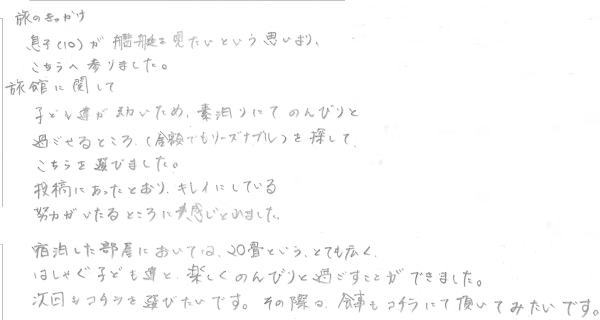 旅のきっかけ
息子(10)が艦艇を見たいという思いより、
こちらへ参りました。
旅館に関して
子ども達が幼いため、素泊りにてのんびりと
過ごせるところ、(金額でもリーズナブル)を探して、
こちらを選びました。
投稿にあったとおり、キレイにしている
努力がいたるところに感じとれました。
宿泊した部屋においては、20畳という、とても広く、
はしゃぐ子ども達と、楽しくのんびりと過ごすことができました。
次回もコチラを選びたいです。その際は、食事もコチラにて頂いてみたいです。